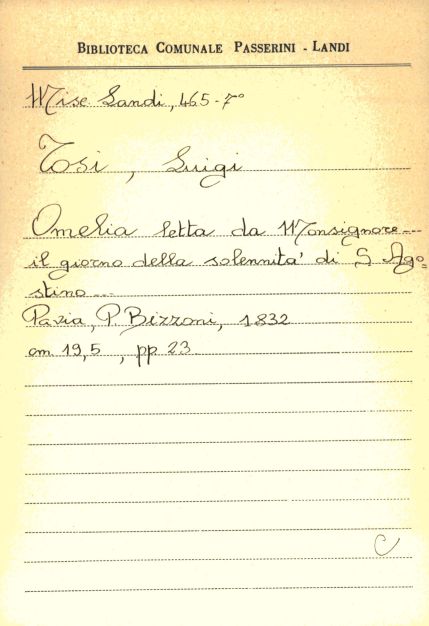 BIBLIOTECA COMUNALE PASSERINI - LANDI
Misc Landi, 465-7°
Tosi, Luigi
Omelia letta da Monsignore...
il giorno della solennita' di S. Ago=
stino...
Pavia, P. Bizzoni, 1832
cm. 19,5, pp 23
C